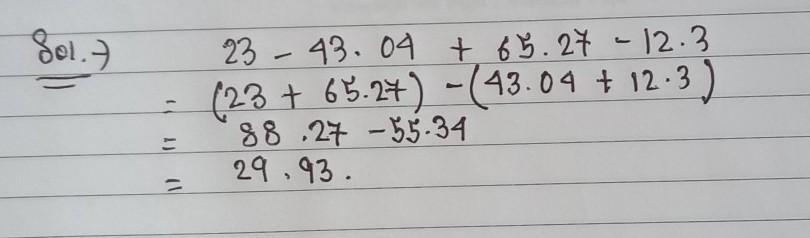 Sol.→ 23 - 43.04 + 65.27 - 12.3
= (23 + 65.27) - (43.04 + 12.3)
= 88.27 - 55.34
= 29.93.